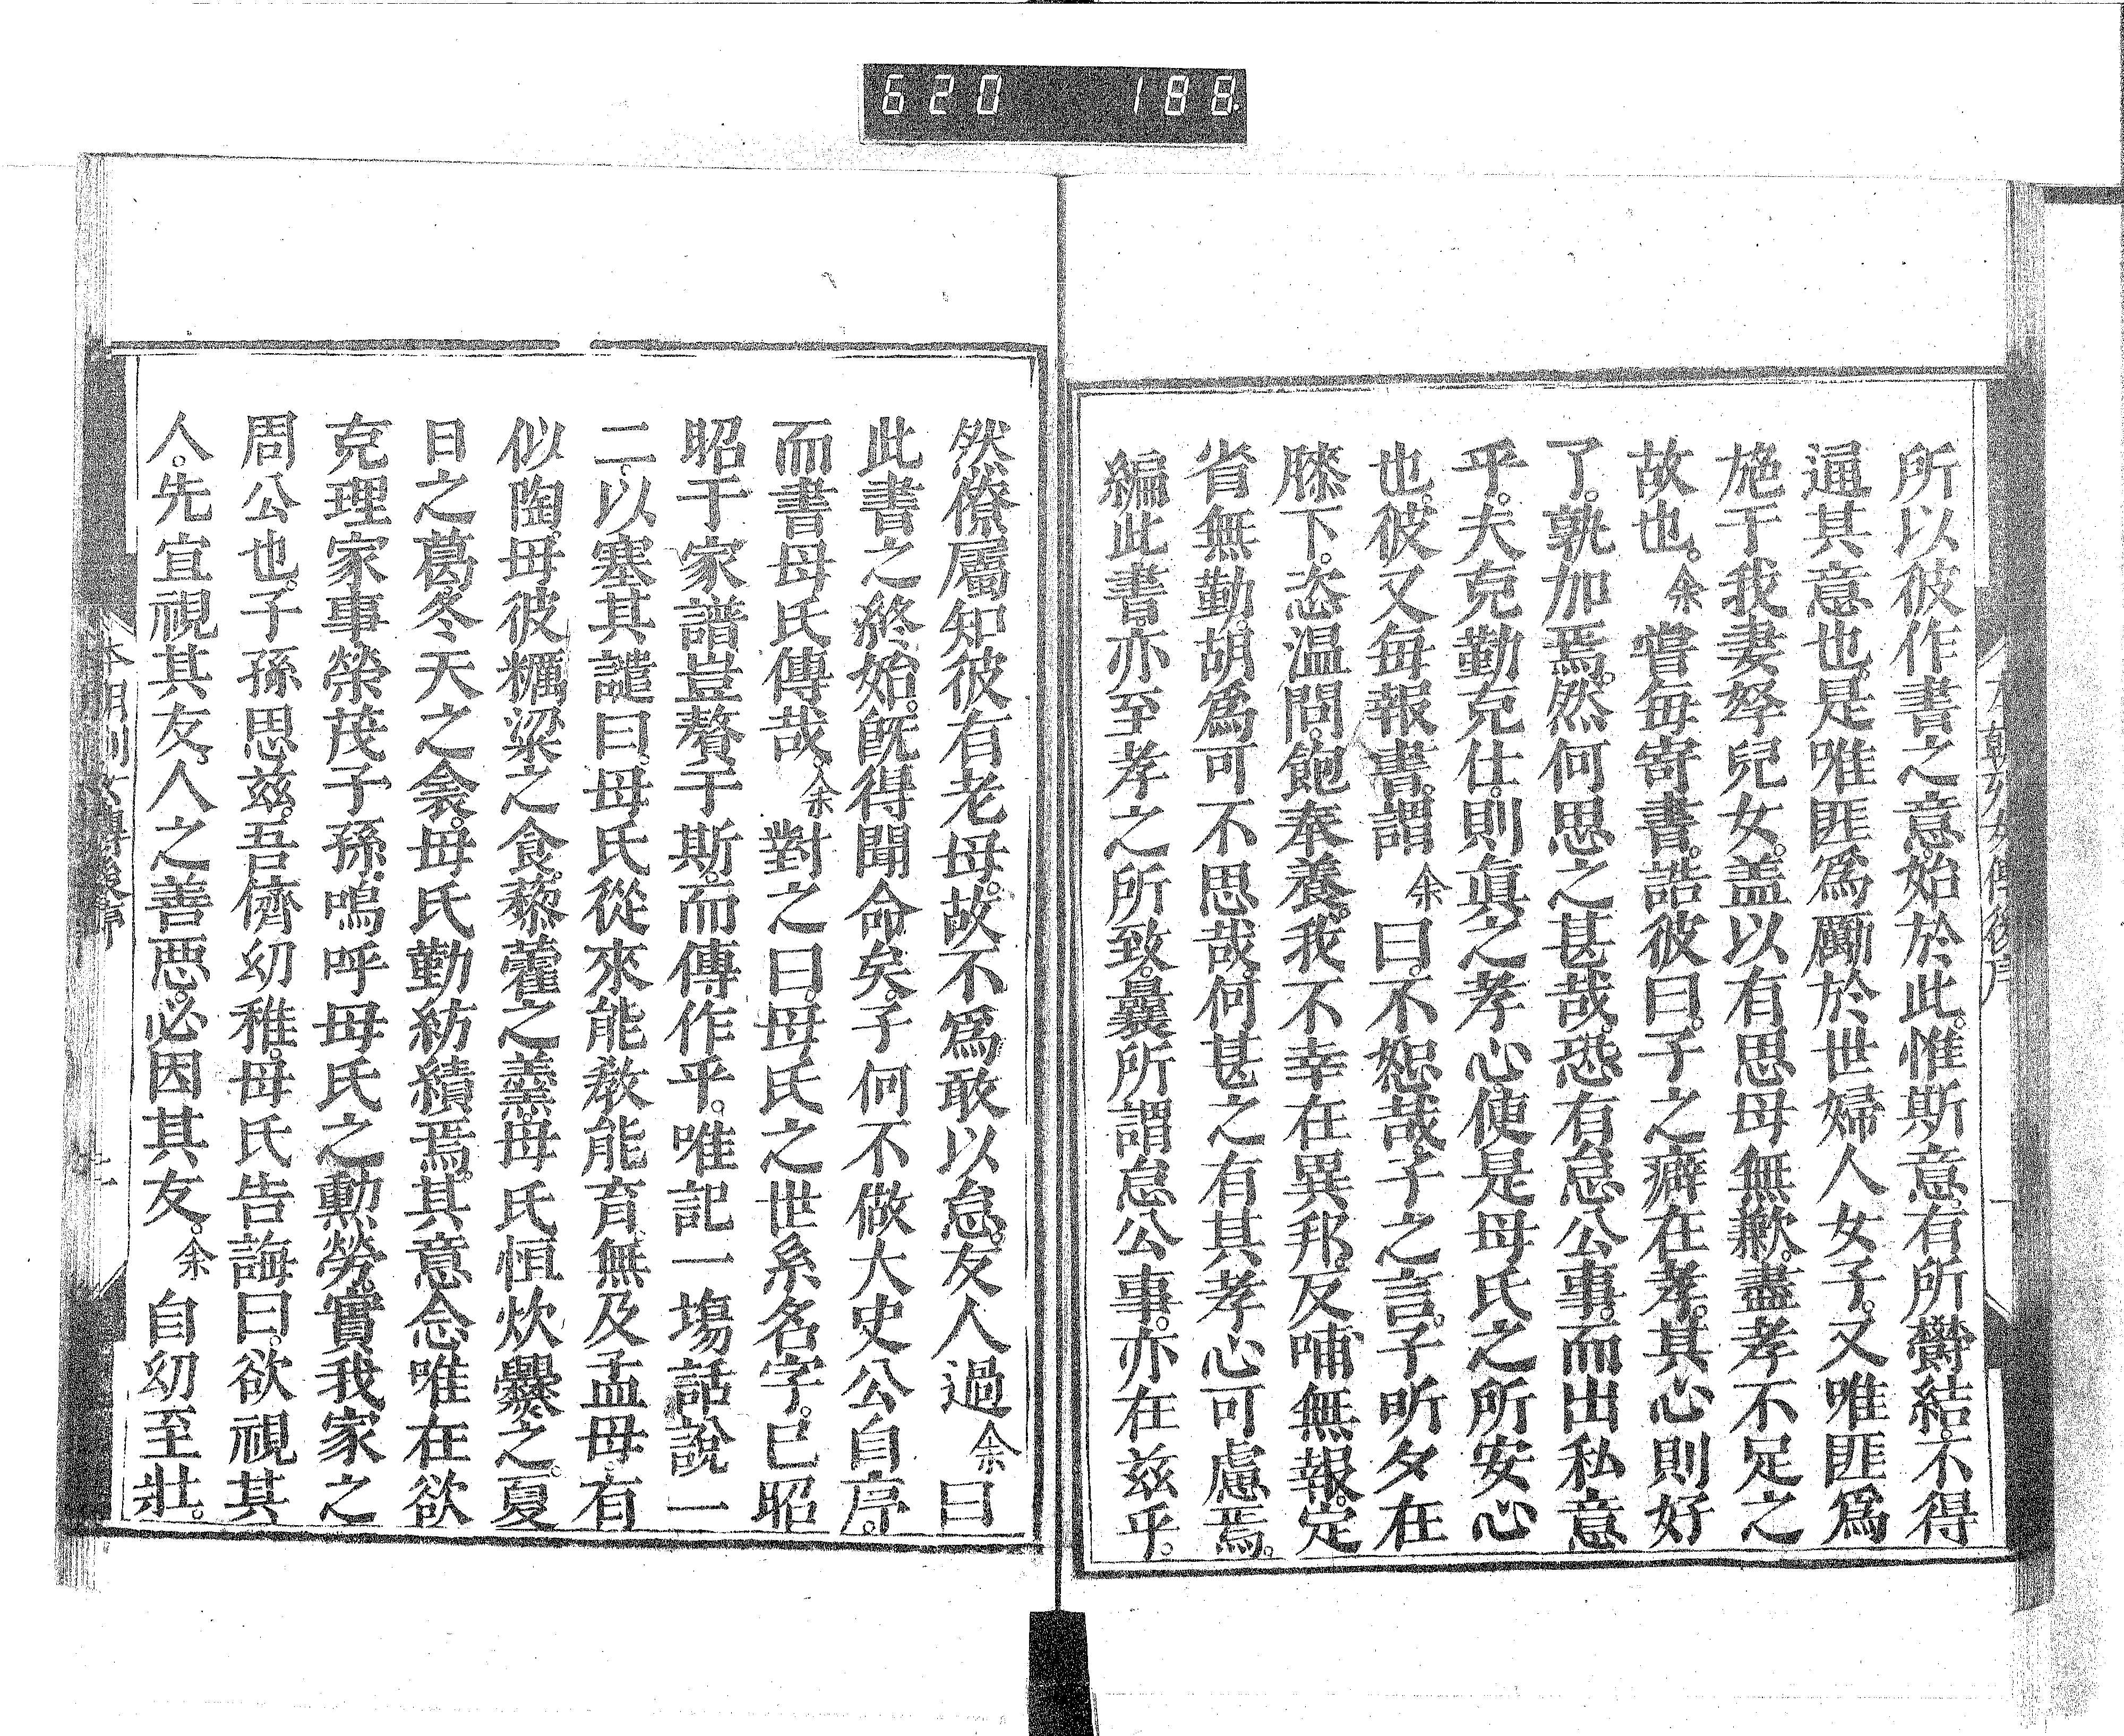 620 188
所以彼作書之意。始於此。惟斯意有所欝結。不得
逼其意也。是唯匪爲勵於世婦人女子。又唯匪爲
施于我妻孥兒女。盖以有思母無歉。盡孝不足之
故也。余嘗每寄書。誥彼曰。子之癖在孝。其心則好
了。孰加焉。然何思之甚哉。恐有怠公事。而出私意
乎。夫克勤克仕。則眞之孝心。使是母氏之所安心
也。彼又每報書。謂余曰。不恕哉。子之言。子昕夕在
膝下。恣温問。飽奉養。我不幸在異邦。反哺無報。定
省無勤。胡爲可不思哉。何甚之有其孝心可慮焉。
編此書。亦至孝之所致。曩所謂怠公事。亦在茲乎。
本朝列女傳後序
然僚屬知彼有老母。故不爲敢以怠。友人過余曰
此書之終始。旣得聞命矣。子何不做大史公自序。
而書母氏傳哉。余對之曰。母氏之世系名字。已昭
昭于家譜。豈贅于斯。而傳作乎。唯記一場話說一
二。以塞其譴曰。母氏從來能敎能育。無及孟母。有
似陶母。彼糲粱之食。藜藿之羹。母氏恒炊爨之。夏
日之葛。冬天之衾。母氏勤紡績焉。其意念唯在欲
克理家事。榮茂子孫。嗚呼母氏之勳勞。實我家之
周公也。子孫思茲。吾儕幼稚。母氏告誨曰。欲視其
人。先宜視其友。人之善惡。必因其友。余自幼至壯。
本朝列女傳後序